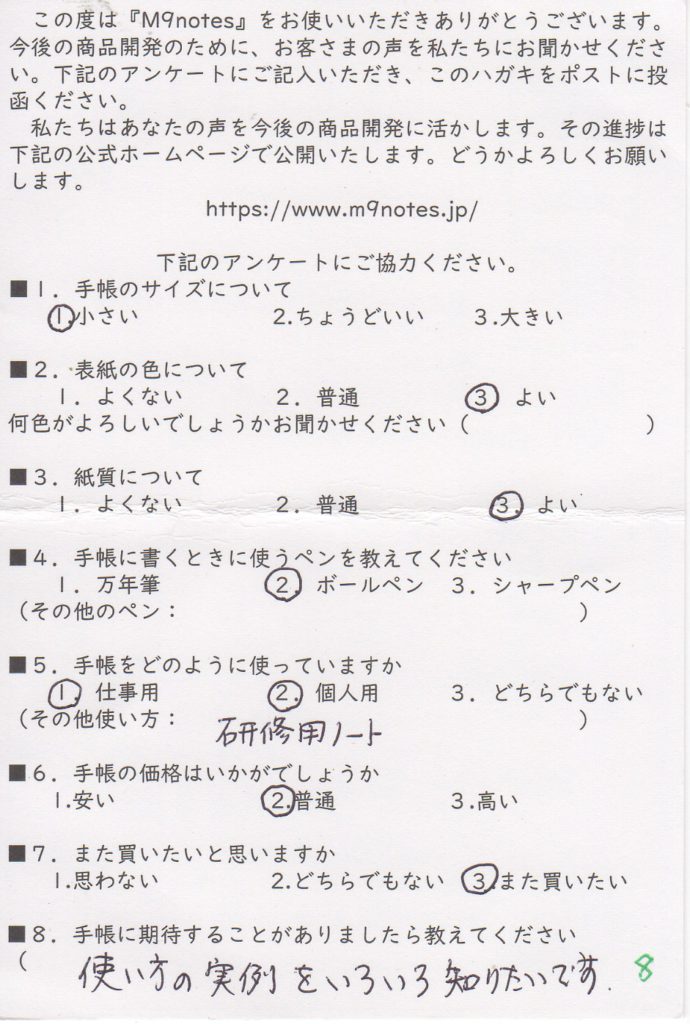 この度は『M9notes』をお使いいただきありがとうございます。
今後の商品開発のために、お客さまの声を私たちにお聞かせくださ
い。下記のアンケートにご記入いただき、このハガキをポストに投
函ください。
私たちはあなたの声を今後の商品開発に活かします。その進捗は
下記の公式ホームページで公開いたします。どうかよろしくお願い
します。
https://www.m9notes.jp/
下記のアンケートにご協力ください。
■1．手帳のサイズについて
1.小さい 2.ちょうどいい 3.大きい
■2．表紙の色について
1．よくない 2．普通 3 よい
何色がよろしいでしょうかお聞かせください（ ）
■3．紙質について
1．よくない 2．普通 3．よい
■4．手帳に書くときに使うペンを教えてください
1．万年筆 2．ボールペン 3．シャープペン
（その他のペン： ）
■5．手帳をどのように使っていますか
1．仕事用 2．個人用 3．どちらでもない
（その他使い方： 研修用ノート ）
■6．手帳の価格はいかがでしょうか
1.安い 2.普通 3.高い
■7．また買いたいと思いますか
1.思わない 2.どちらでもない 3.また買いたい
■8．手帳に期待することがありましたら教えてください
（ 使い方の実例をいろいろ知りたいです. 8